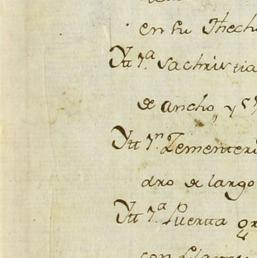 en su Thech
Ytt 1ª Sachristia
de ancho, y 5
Ytt 1n. Zementeri
dro de largo
Ytt 1ª Puerta gr
con